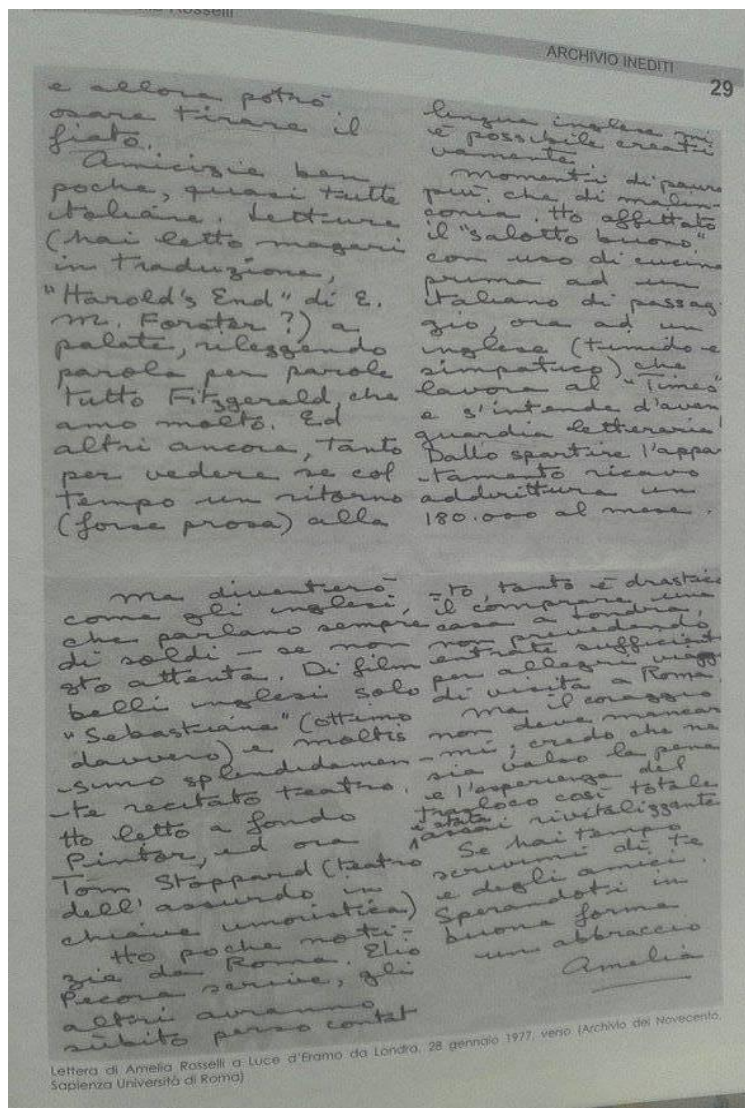 Rosselli
ARCHIVIO INEDITI
29
e allora potrò
osare tirare il
fiato.
Amicizie ben
poche, quasi tutte
italiane. Letture
(hai letto magari
in traduzione,
"Harold's End" di E.
M. Forster?) a
palate, rileggendo
parola per parola
tutto Fitzgerald, che
amo molto. Ed
altri ancora, tanto
per vedere se col
tempo un ritorno
(forse prosa) alla
lingua inglese mi
è possibile creati
vamente.
Momenti di paura
più che di malin-
conia. Ho affittato
il "salotto buono",
con uso di cucina
prima ad un
italiano di passag-
gio, ora ad un
inglese (timido e
simpatico) che
lavora al "Times"
e s'intende d'avan
guardia letteraria!
Dallo spartire l'appa
-tamento ricavo
addirittura un
180.000 al mese.
Ma diventerò
come gli inglesi,
che parlano sempre
di soldi – se non
sto attenta. Di film
belli inglesi solo
"Sebastiane" (ottimo
davvero) e moltis
-simo splendidamen-
-te recitato teatro.
Ho letto a fondo
Pinter, ed ora
Tom Stoppard (teatro
dell'assurdo in
chiave umoristica)
Ho poche noti-
zie da Roma. Elio
Pecora scrive, gli
altri avranno
subito perso contat
-to, tanto è drastico
il comprare una
casa a Londra,
non prevedendo
entrate sufficienti
per allegri viaggi
di visita a Roma.
Ma il coraggio
non deve mancar
-mi; credo che ne
sia valso la pena
e l'esperienza del
trasloco così totale
è stata
assai rivitalizzante
Se hai tempo
scrivimi di te
e degli amici.
Sperandoti in
buona forma
un abbraccio
Amelia
Lettera di Amelia Rosselli a Luce d'Eramo da Londra, 28 gennaio 1977, verso (Archivio del Novecento,
Sapienza Università di Roma)